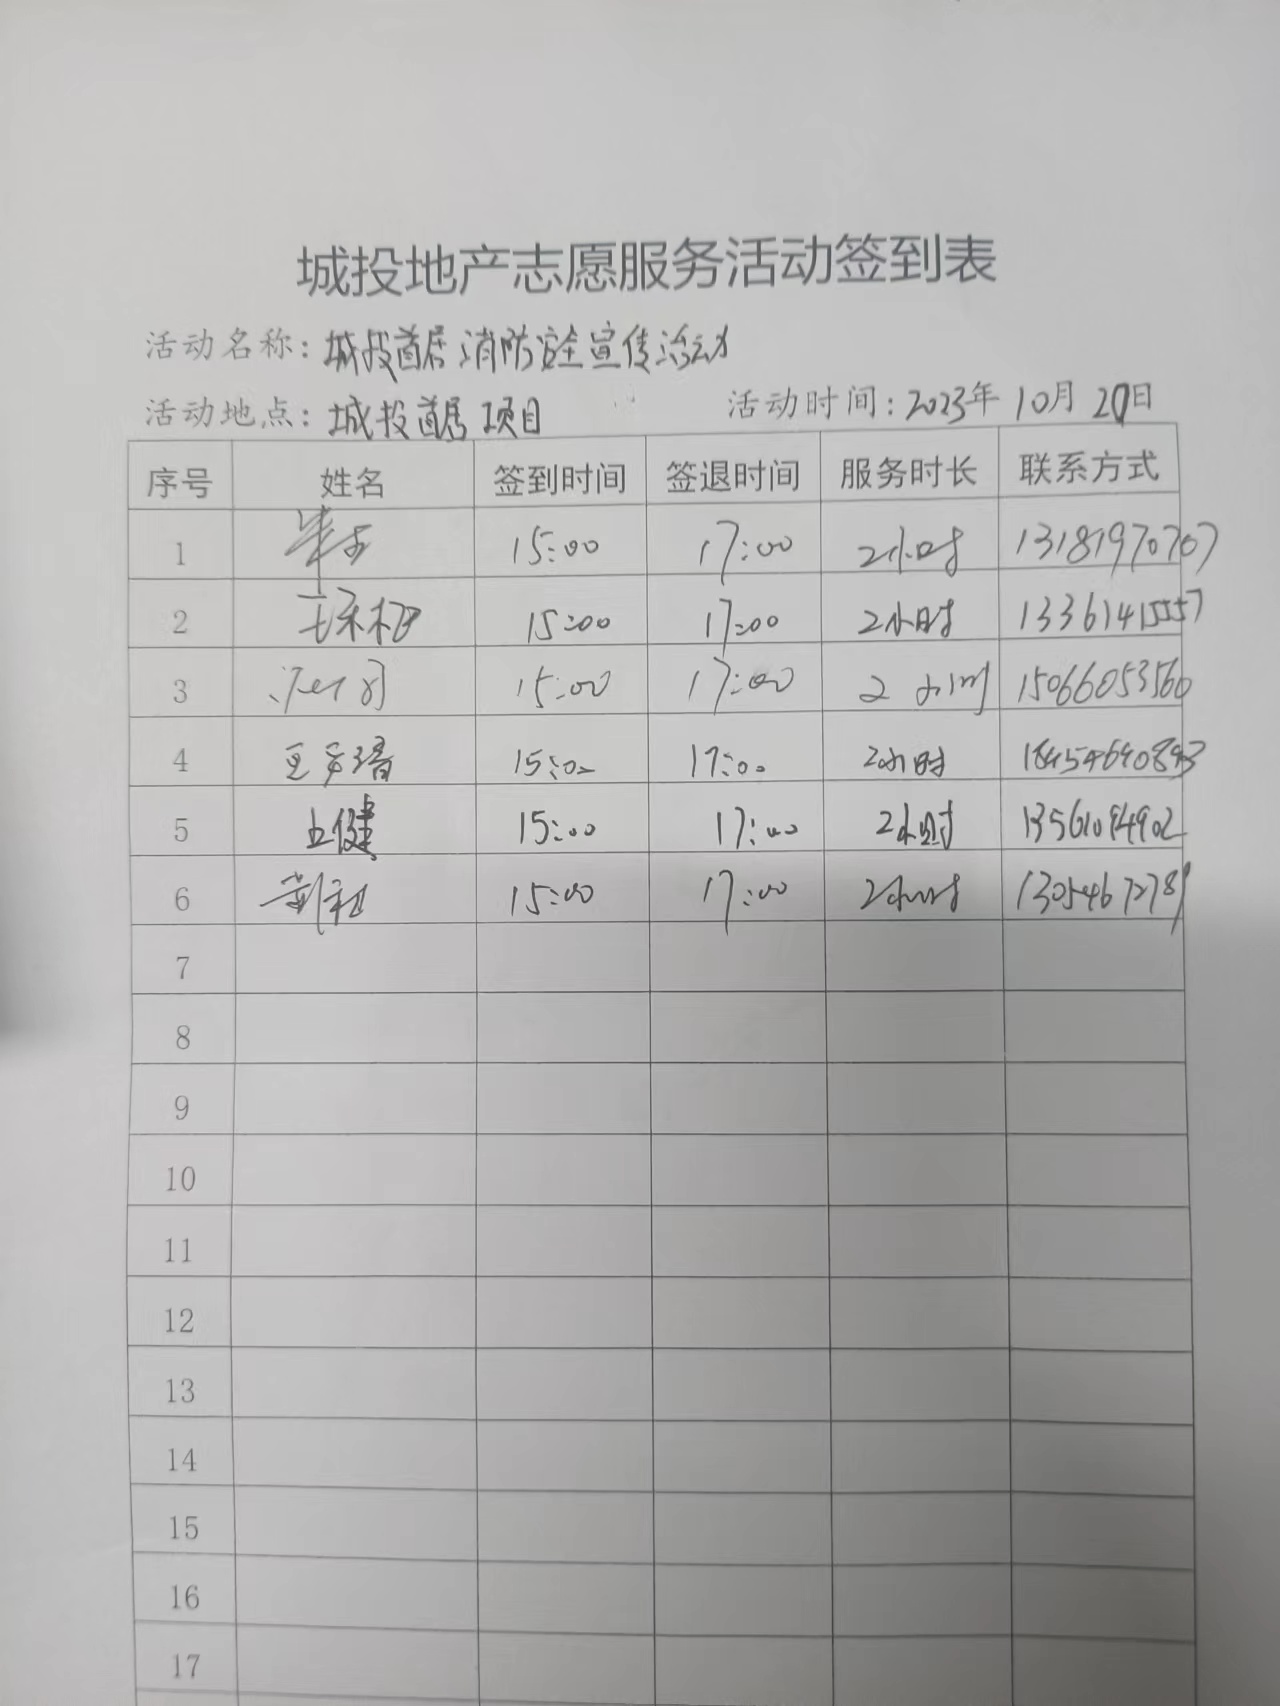 城投地产志愿服务活动签到表
活动名称：城投首居消防安全宣传活动
活动地点：城投首居项目 活动时间：2023年10月20日
序号 姓名 签到时间 签退时间 服务时长 联系方式
1 15:00 17:00 2小时 13181970707
2 15:00 17:00 2小时 13361415557
3 15:00 17:00 2小时 15066053560
4 15:00 17:00 2小时
5 王健 15:00 17:00 2小时 13561094902
6 15:00 17:00 2小时 13054672789
7
8
9
10
11
12
13
14
15
16
17